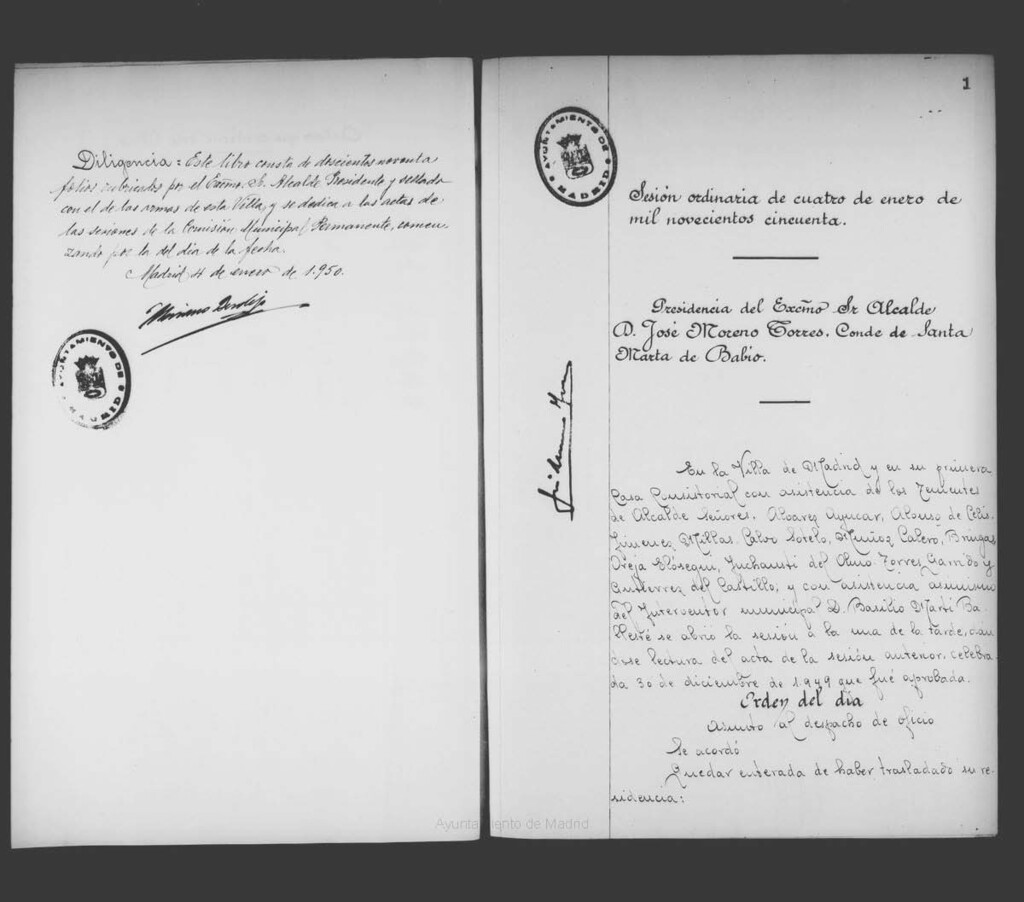 Diligencia = Este libro consta de doscientos noventa
folios rubricados por el Excmo. Sr. Alcalde Presidente y sellado
con el de las armas de esta Villa y se dedica a las actas de
las sesiones de la Comisión Municipal Permanente, comen
zando por la del día de la fecha.
Madrid 4 de enero de 1.950.
AYUNTAMIENTO DE
MADRID
1
AYUNTAMIENTO DE
MADRID
Sesión ordinaria de cuatro de enero de
mil novecientos cincuenta.
Presidencia del Excmo Sr Alcalde
D. José Moreno Torres, Conde de Santa
Marta de Babío.
En la Villa de Madrid y en su primera
Casa Consistorial con asistencia de los Tenientes
de Alcalde Señores, Alvarez Ayucar, Alonso de Celis,
Jimenez Millas, Calvo Sotelo, Muñoz Calero, Bringas
Oreja Elósegui, Juchausti del Olmo, Torres Garrido y
Gutierrez del Castillo; y con asistencia asimismo
del Interventor municipal D. Basilio Martí Ba-
llesté se abrió la sesión á la una de la tarde, dán
dose lectura del acta de la sesión anterior, celebra-
da 30 de diciembre de 1.949 que fué aprobada.
Orden del día
Asunto al despacho de oficio
Se acordó
Quedar enterada de haber trasladado su re-
sidencia:
Ayuntamiento de Madrid